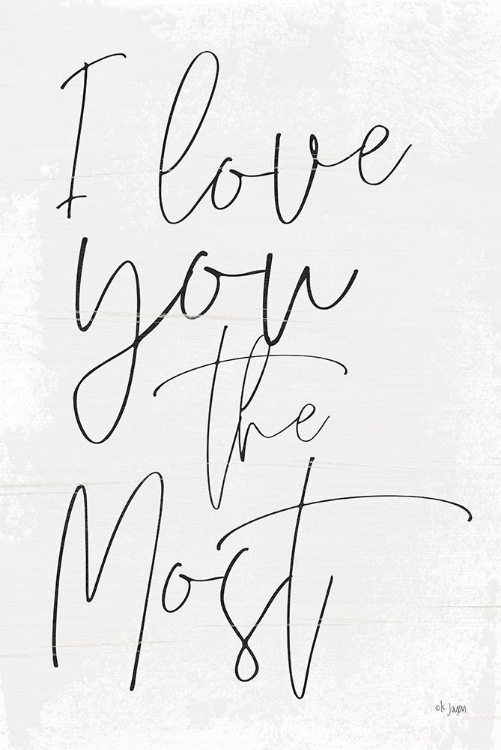 I love
you
the
Most
©K Jaxpn